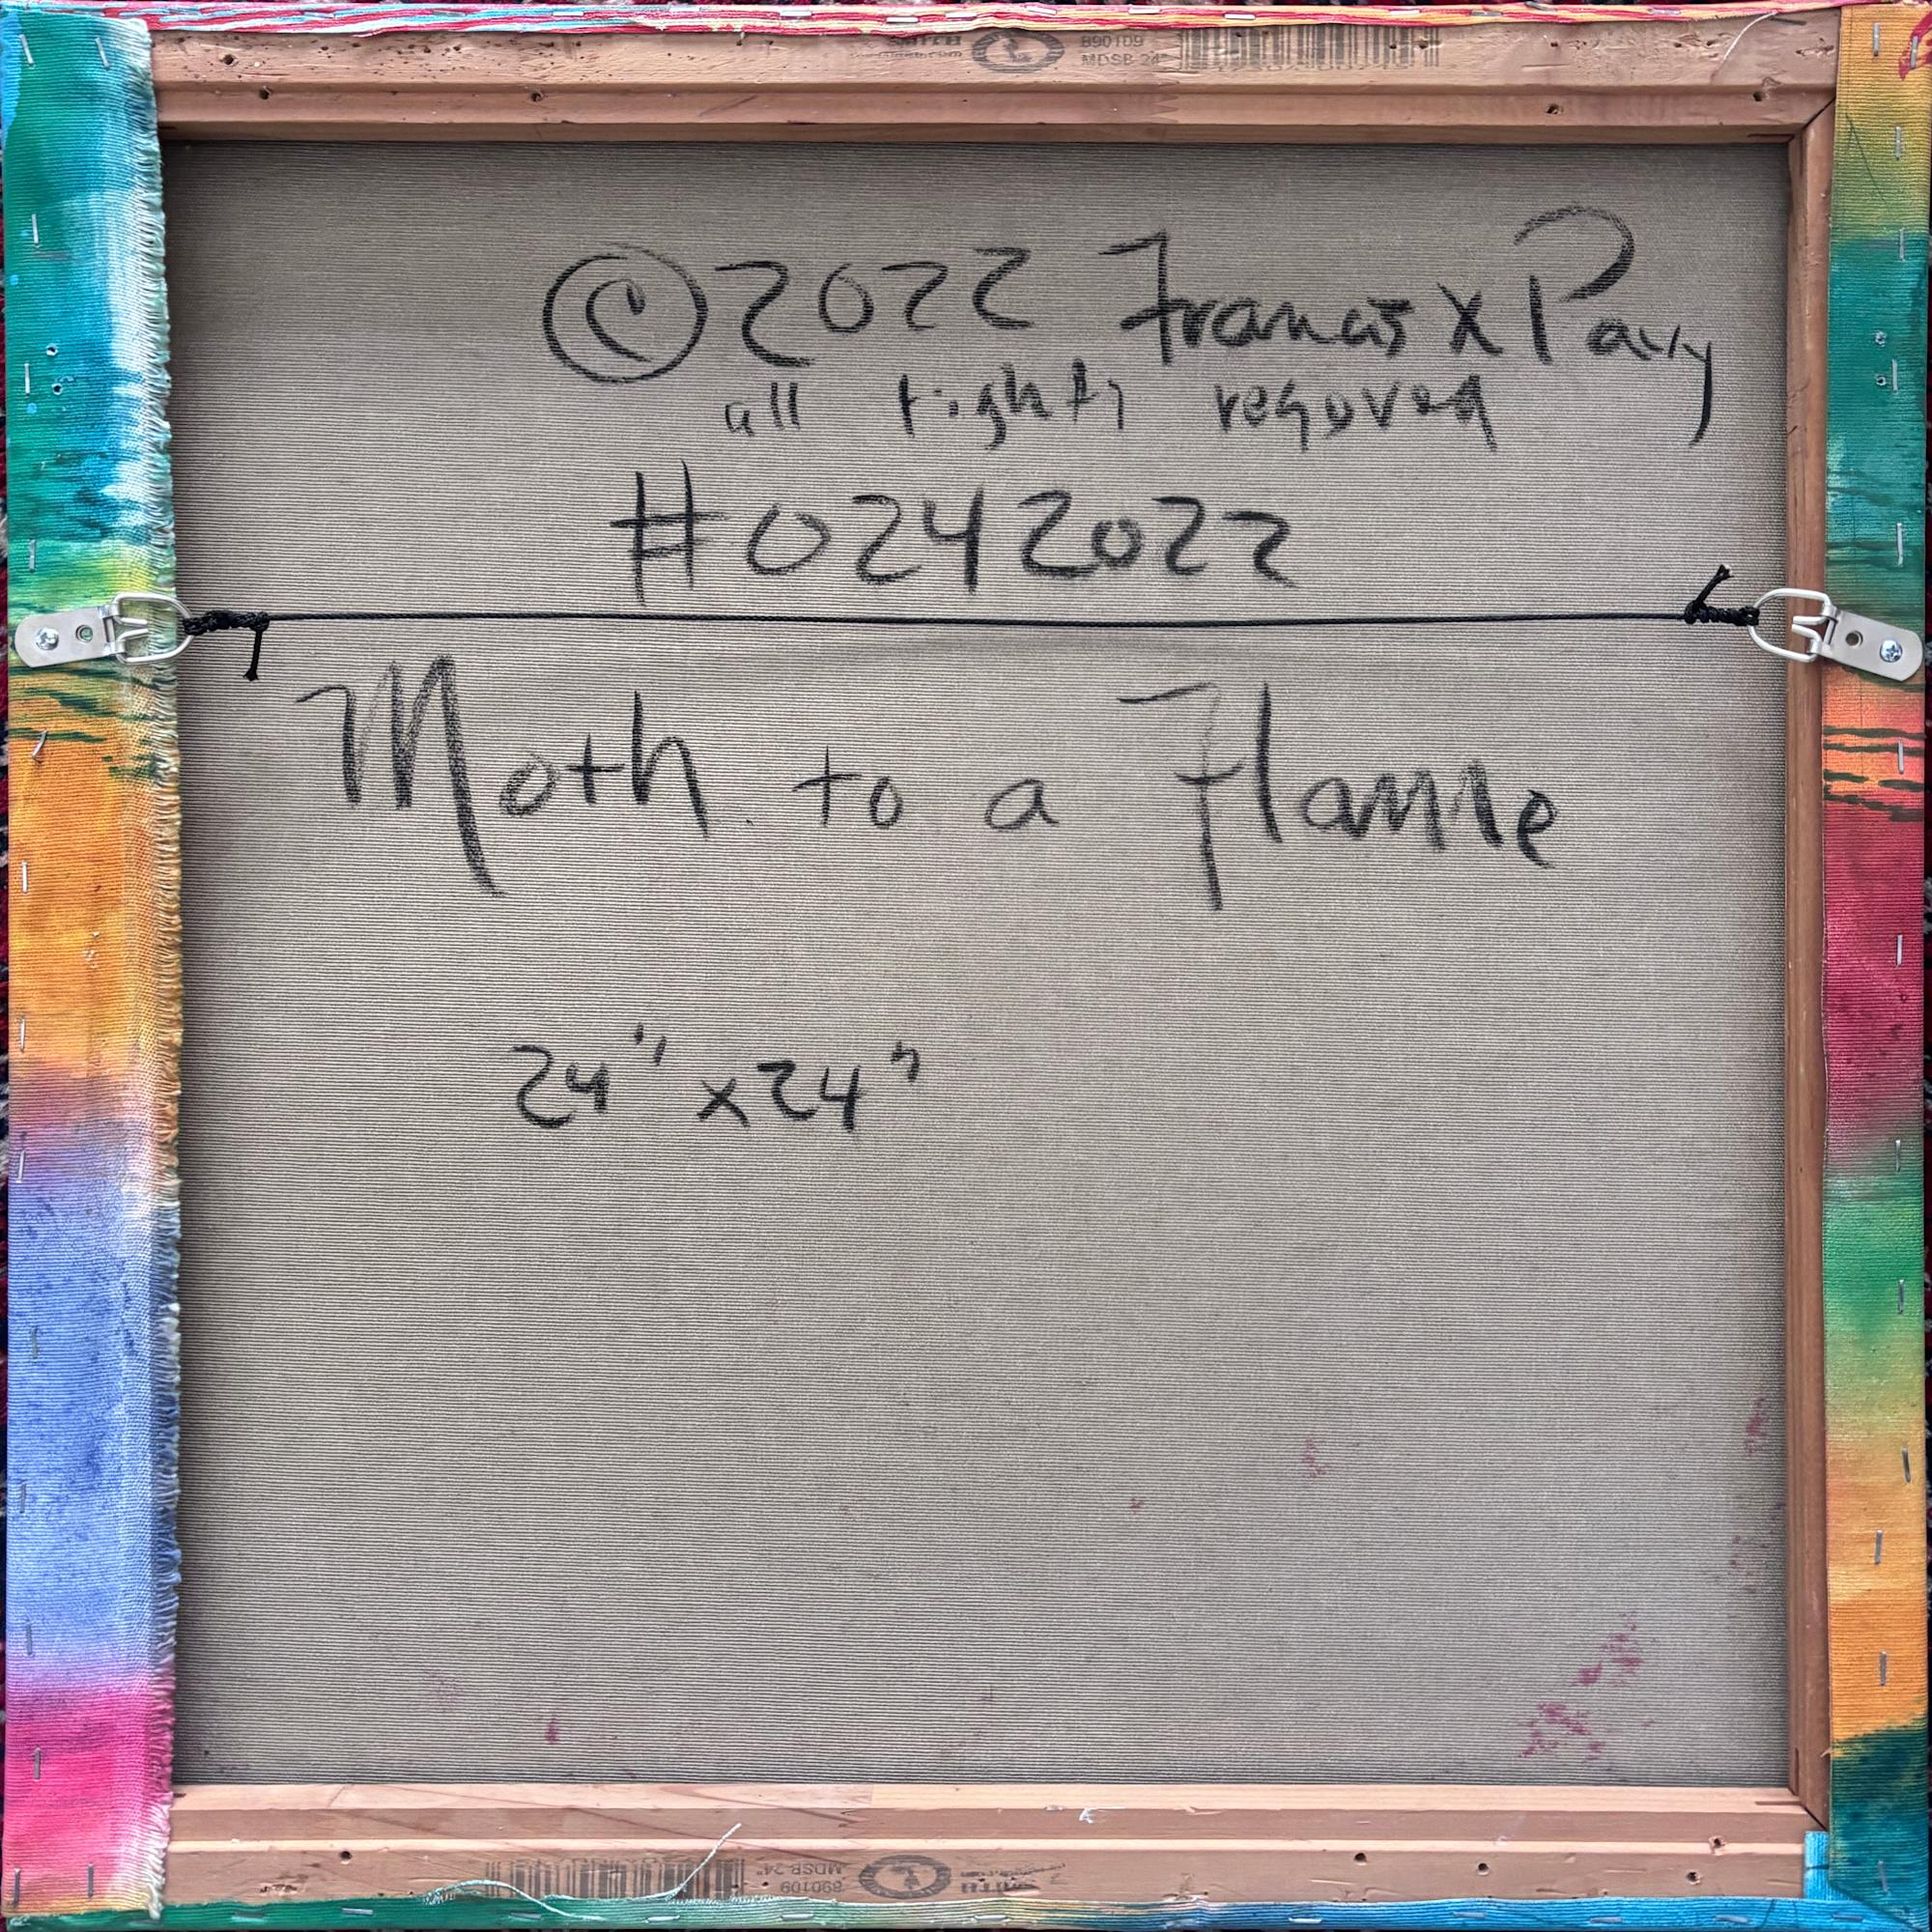 890109
MDSB 24"
©2022 Francis X Pavy
all rights reserved
#0242022
Moth to a Flame
24" x 24"
MDSB 24"
890109